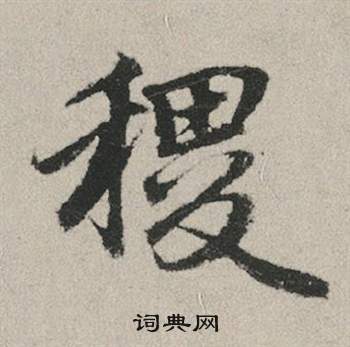 稷
词典网